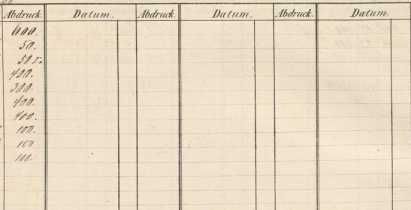 Abdruck. Datum. Abdruck. Datum. Abdruck. Datum.
600.
50.
50
400.
300.
400.
400.
100.
100
100.